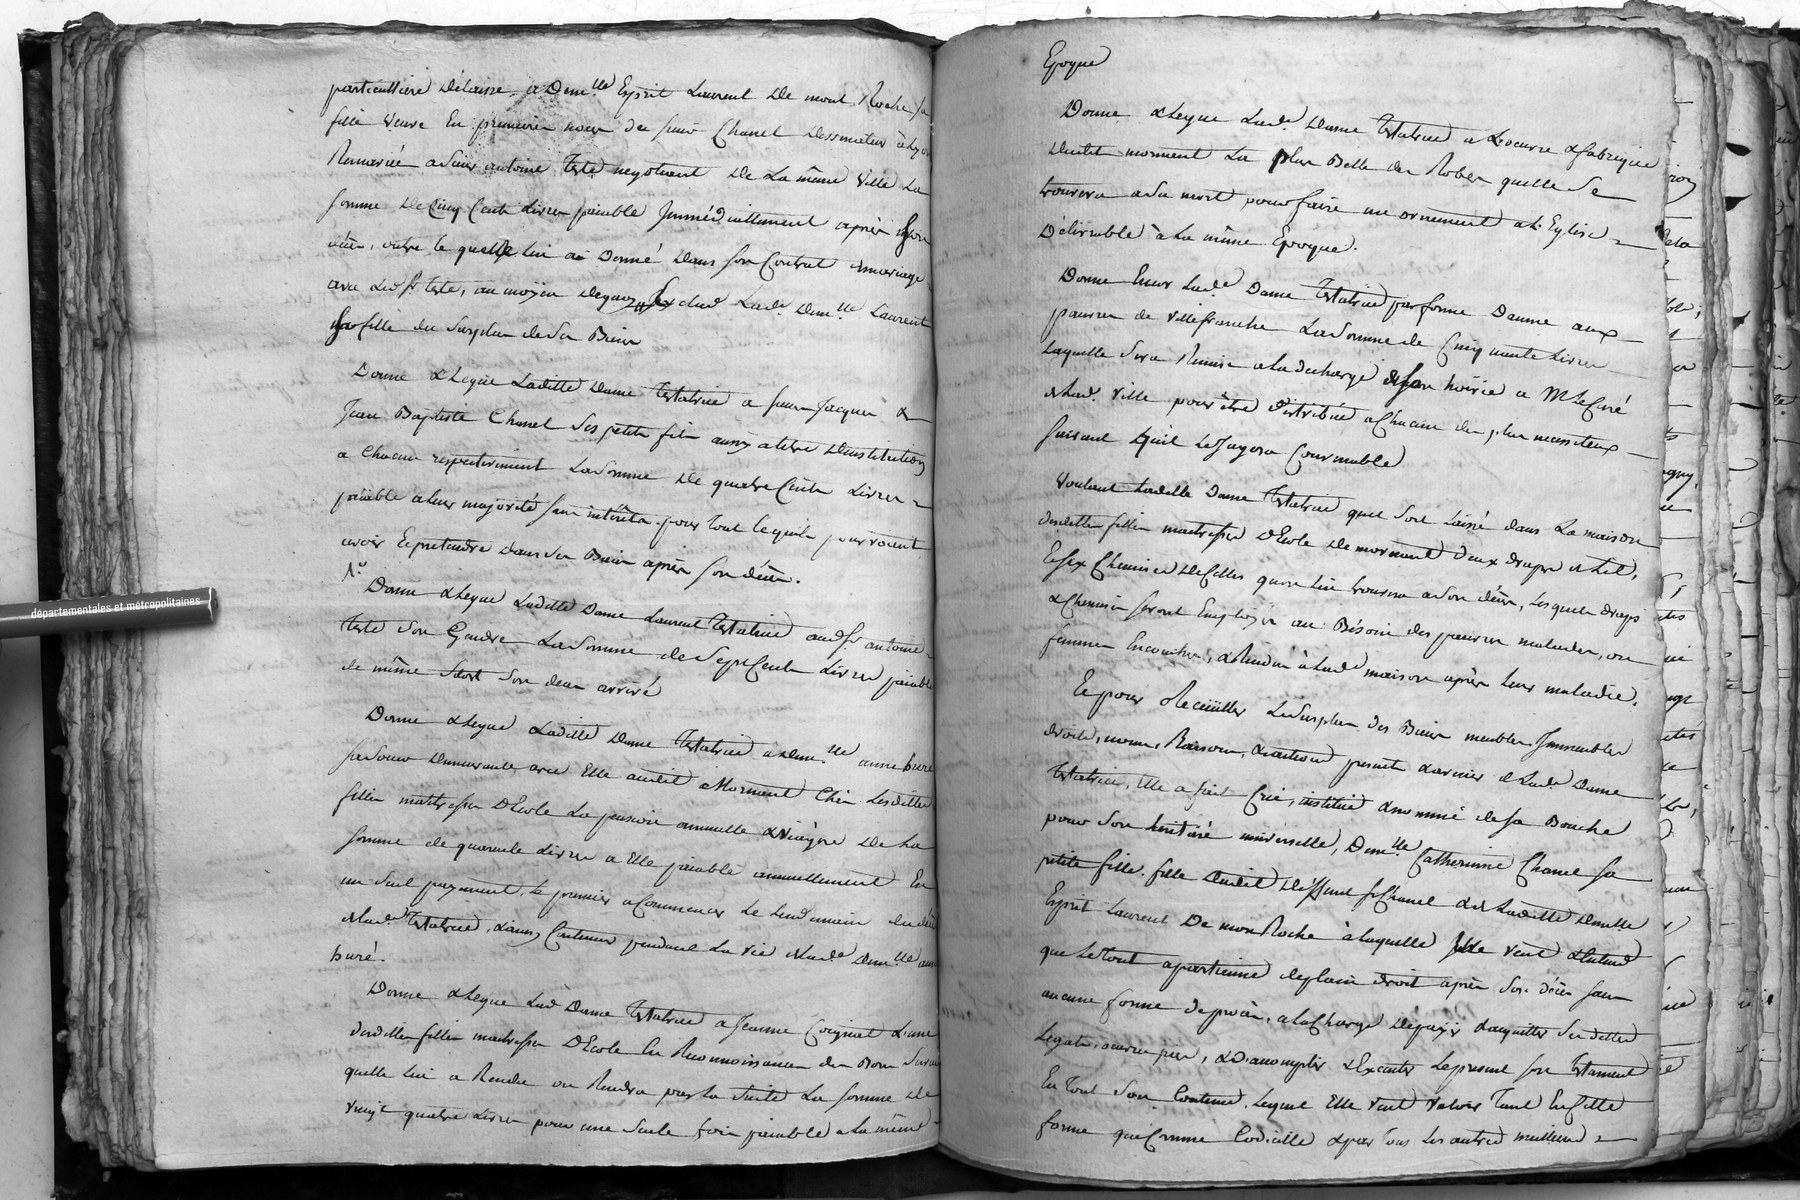 particulliere délaisse a Dem.lle Esprit Laurent De mont Roche sa
fille veuve En premiere noces du sieur Chanel Dessinateur à Lyon
Remariée a sieur antoine teste negotient De La même ville La
somme De Cinq Cents Livres païable Immédiattement après son
décès, outre le quelle lui a Donné Dans son Contrat de mariage
avec Led. sr. teste, au moÿen dequoy Exclud Lad.e Dem.lle Laurent
sa fille du Surplus de Ses Biens
Donne & Legue Laditte Dame testatrice a sieurs Jacques &
Jean Baptiste Chanel Ses petits fils aussy a titre D'institution
a Chacun respectivement La Somme De quatre Cents Livres
païable a leur majorité sans intérêts pour tout ce qu'ils pourroient
avoir Et pretendre Dans Ses Biens après son décès.
1.o
Donne & Legue Laditte Dame Laurent testatrice aud. sr. antoine
teste Son Gendre La Somme de Sept Cents Livres païable
de même Son decès arrivé
Donne & Legue Laditte Dame testatrice à Dem.lle anne buré
sa Soeur Demeurante avec Elle audit Mornant Chés Lesdittes
filles maitresses D'Ecole La pension annuelle & viagère De La
somme de quarente Livres a Elle païable annuellement En
un Seul payement, le premier a Commencer Le Lendemain du décès
de Lad.e testatrice, & ainsy Continuer pendant La vie de Lad.e Dem.lle anne
buré.
Donne & Legue Lad.e Dame testatrice a Jeanne Coignet L'une
desdittes filles maitresses D'Ecole En Reconnoissance des Bons Services
quelle lui a Rendu ou Rendra par La Suite La somme De
vingt quatre Livres pour une Seule fois païable a La même
Epoque
Donne & Legue Lad.e Dame testatrice a L'oeuvre & fabrique
Dudit mornant La plus Belle des Robes quelle Se
trouvera a Sa mort pour faire un ornement a L'Eglise
Délivrable à La même Epoque.
Donne Encor Lad.e Dame testatrice par forme D'aumone aux
pauvres de villefranche La Somme de Cinquante Livres
Laquelle Sera Remise a La decharge de son hoirie a Mr Le Curé
de Lad.e ville pour être distribuée a Chacun des plus necessiteux
suivant quil Le Jugera Convenable
Voulant Laditte Dame testatrice quil Soit Laissé dans La maison
desdittes filles maitresses D'Ecole De mornant deux draps de Lit,
Et six Chemises De Celles quon lui trouvera a Son décès, Lesquels draps
& Chemises seront Employés au Bésoin des pauvres malades, ou
femmes En couches, & Rendus à Lad.e maison après Leurs maladie.
Et pour Recüeillir Le Surplus des Biens meubles Immeubles
droits, noms, Raisons, & actions presents & avenirs de Lad.e Dame
testatrice, Elle a fait Crée, institué & nommé de sa Bouche
pour Son héritiére universelle, Dem.lle Catherinne Chanel sa
petite fille. fille Dudit Deffunt sr Chanel & de Laditte Dem.lle
Esprit Laurent De mon Roche à Laquelle Elle veut & Entend
que Le tout apartienne de plain droit après Son décès sans
aucune forme de procès, a La Charge De païer & acquitter Ses dettes
Legats, oeuvres pies, & D'accomplir & Executer Le present son testament
En tout Son Contenu. Lequel Elle veut valoir Tant En Cette
forme que Comme Codicille & par tous les autres meilleurs
départementales et métropolitaines